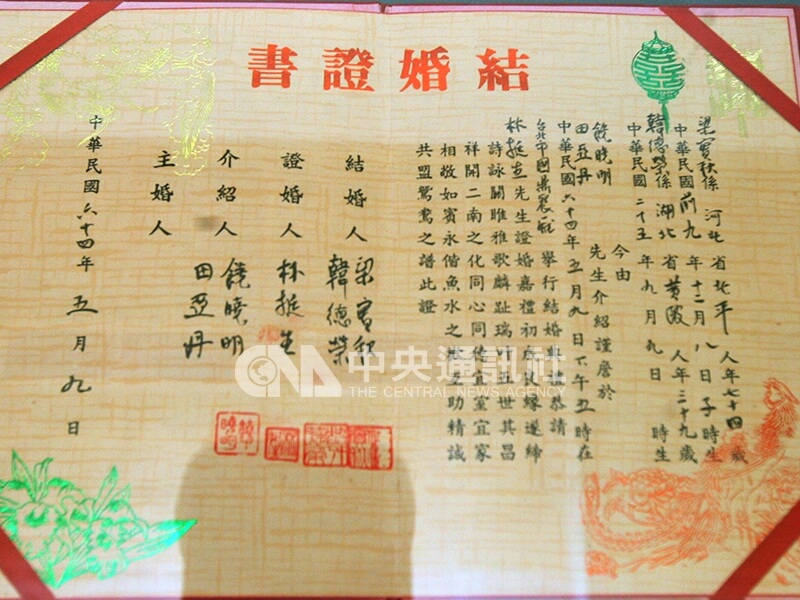 結婚證書
梁實秋係河北省北平人年七十四歲
中華民國前九年十二月八日子時生
韓德榮係湖北省黃陂人年三十九歲
中華民國二十五年九月九日 時生
今由
饒曉明
田亞丹
先生介紹謹詹於
中華民國六十四年五月九日下午五時在
台北市國鼎 舉行結婚典禮恭請
林挺生先生證婚嘉禮初成良緣遂締
詩詠關雎雅歌麟趾瑞叶五世其昌
祥開二南之化同心同德宜室宜家
相敬如賓永偕魚水之歡互助精誠
共盟鴛鴦之譜此證
結婚人 梁實秋
韓德榮
證婚人 林挺生
介紹人 饒曉明
田亞丹
主婚人
中華民國六十四年五月九日
CNA 中央通訊社
THE CENTRAL NEWS AGENCY